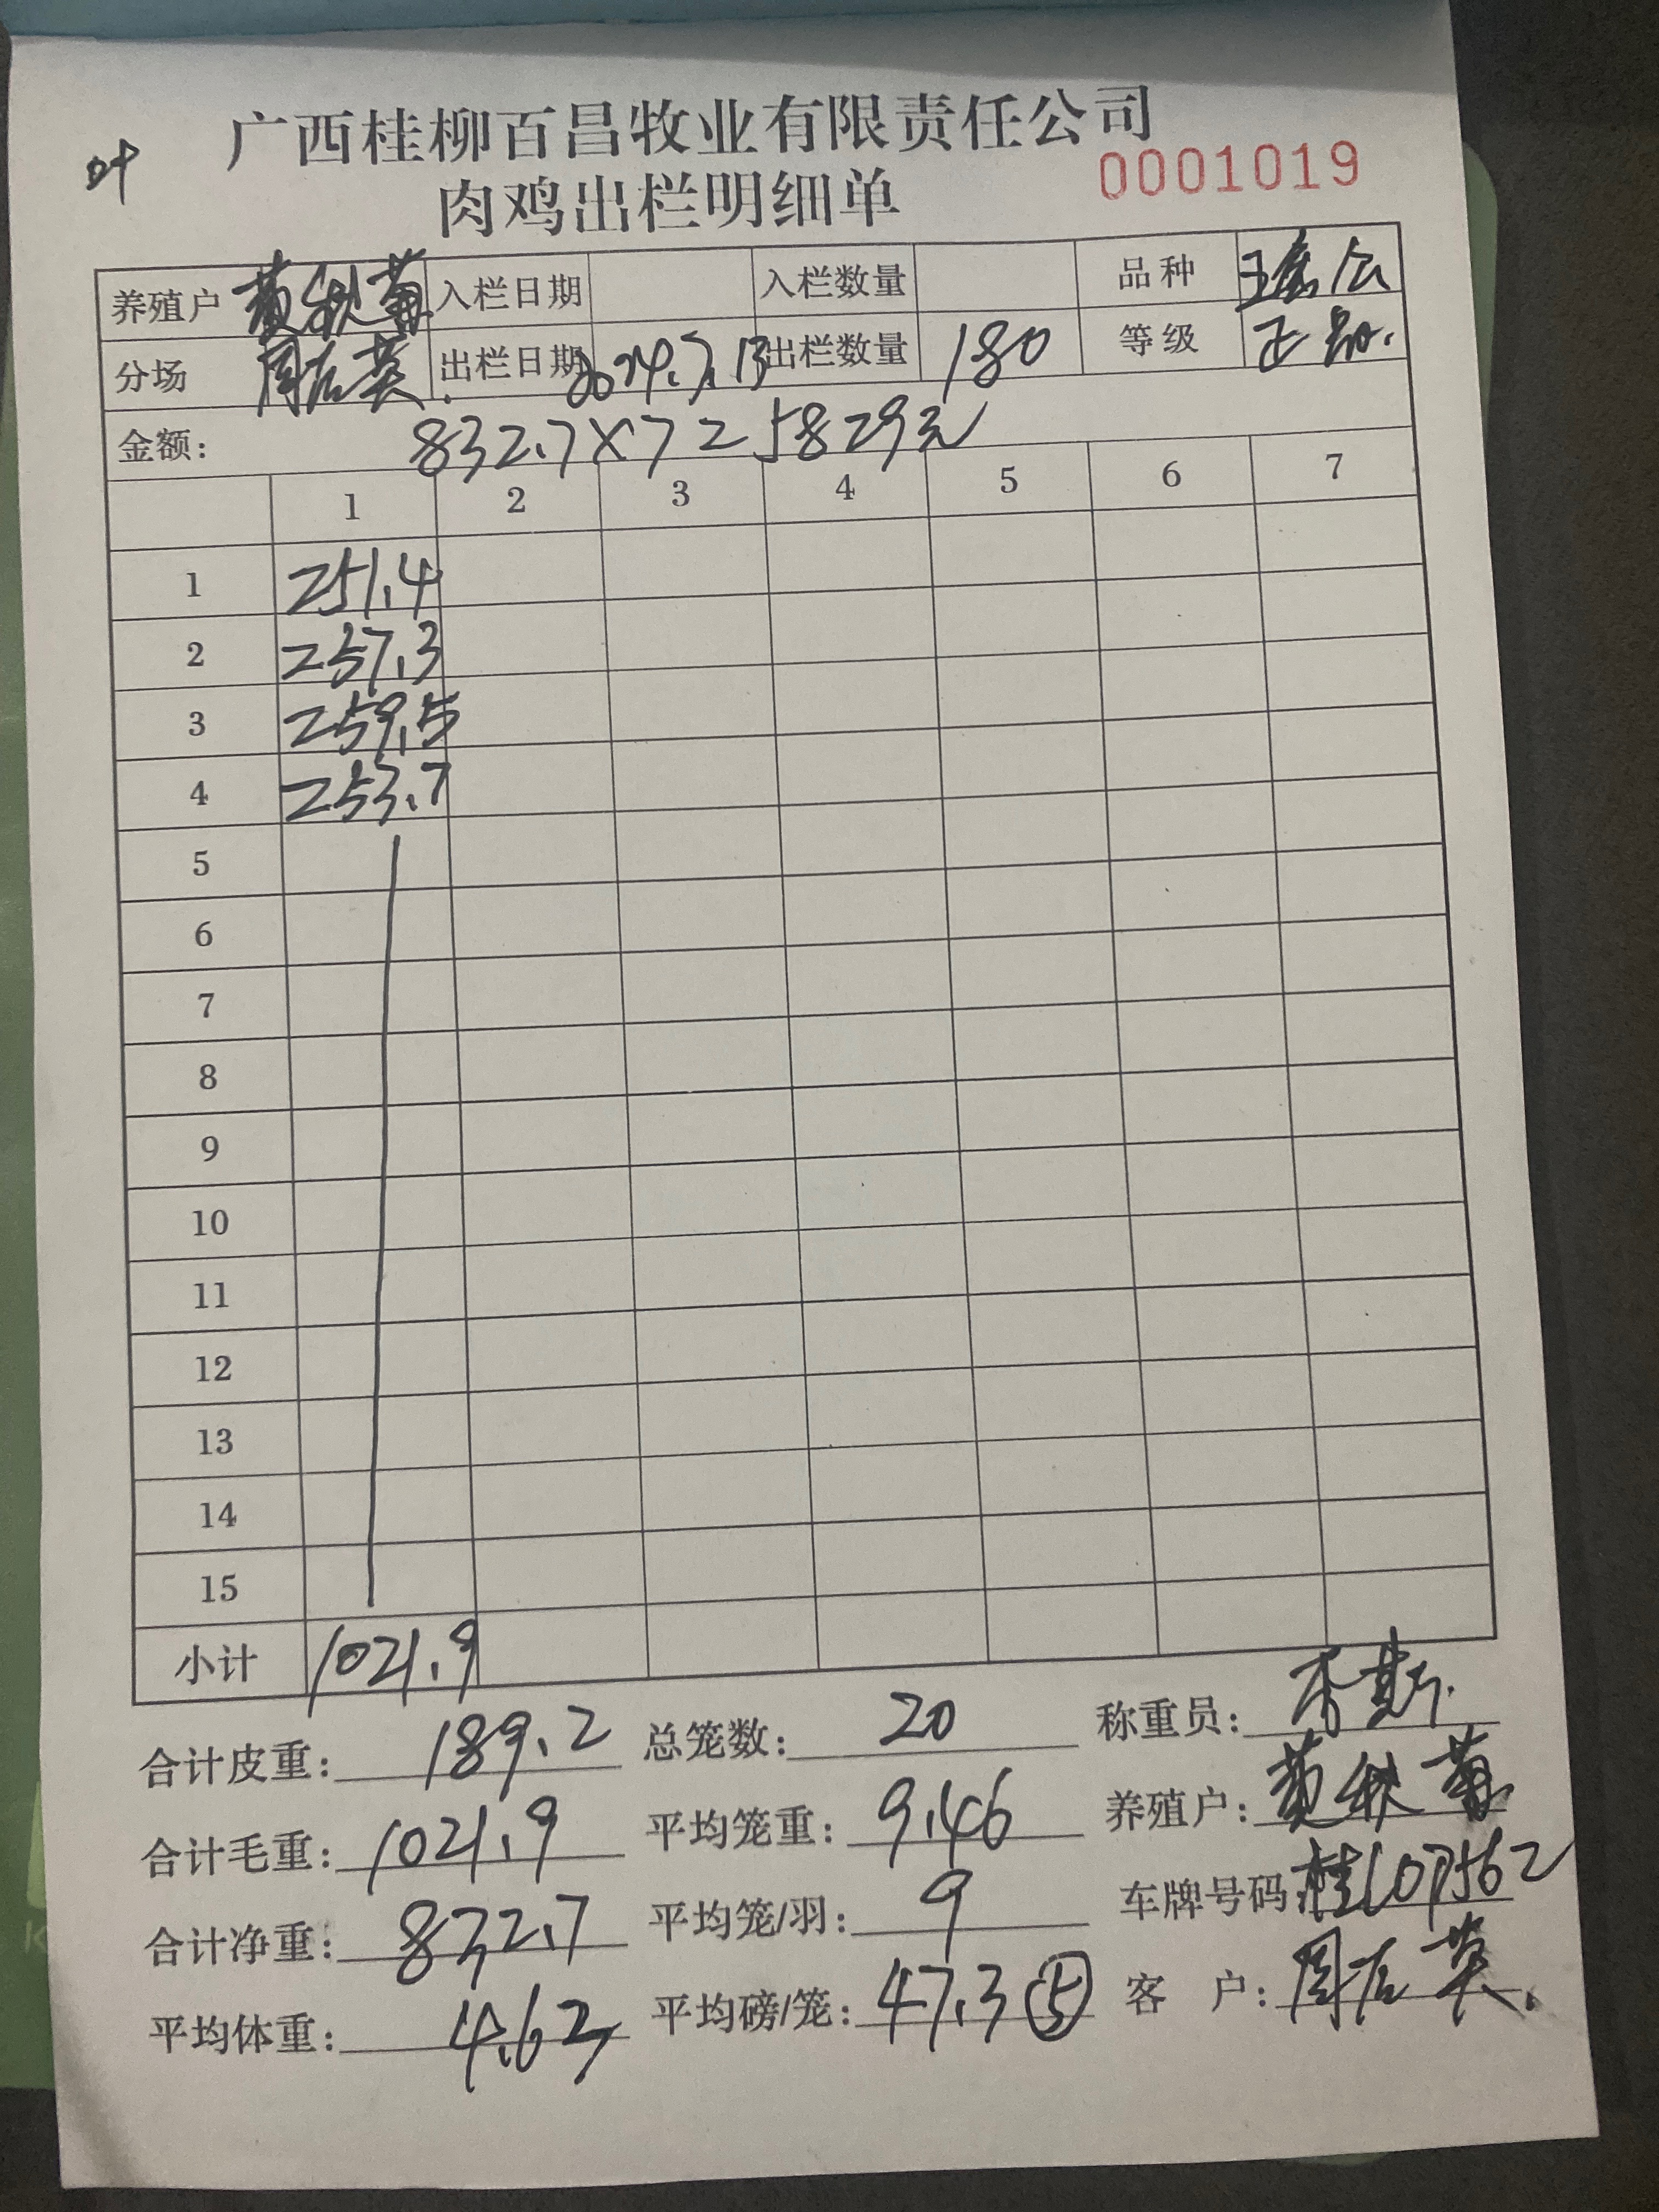 叶
广西桂柳百昌牧业有限责任公司
肉鸡出栏明细单
0001019
养殖户 黄秋菊 入栏日期 入栏数量 品种
分场 周右英. 出栏日期 2024.7.13 出栏数量 180 等级 正品.
金额: 832.7×7=5829元
1 2 3 4 5 6 7
1 251.4
2 257.3
3 259.5
4 253.7
5
6
7
8
9
10
11
12
13
14
15
小计 1021.9
合计皮重: 189.2 总笼数: 20 称重员:
合计毛重: 1021.9 平均笼重: 9.46 养殖户: 黄秋菊
合计净重: 832.7 平均笼/羽: 9 车牌号码:
平均体重: 4.63 平均磅/笼: 47.3⑤ 客 户: 周右英.